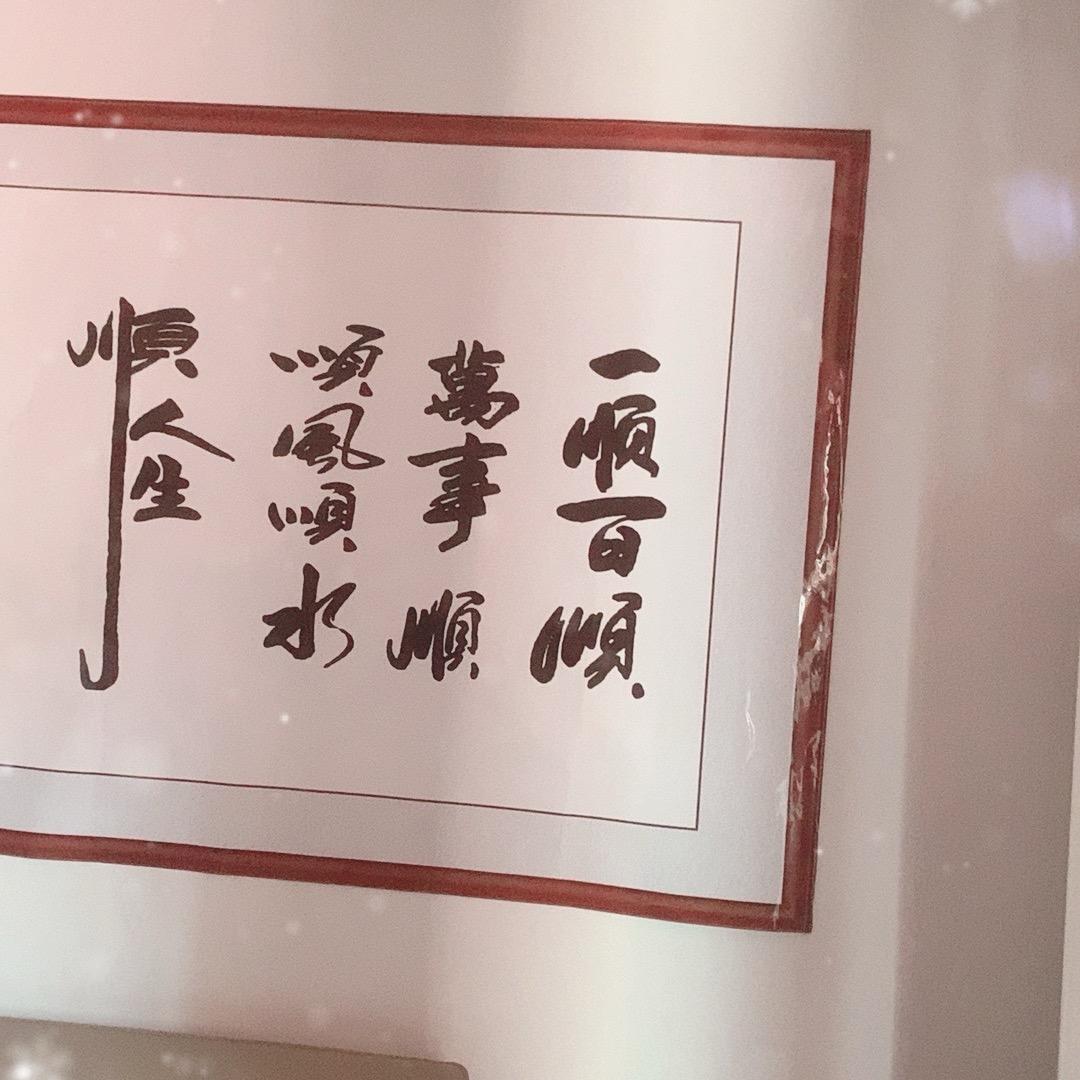 一順百順
萬事順
順風順水
順人生